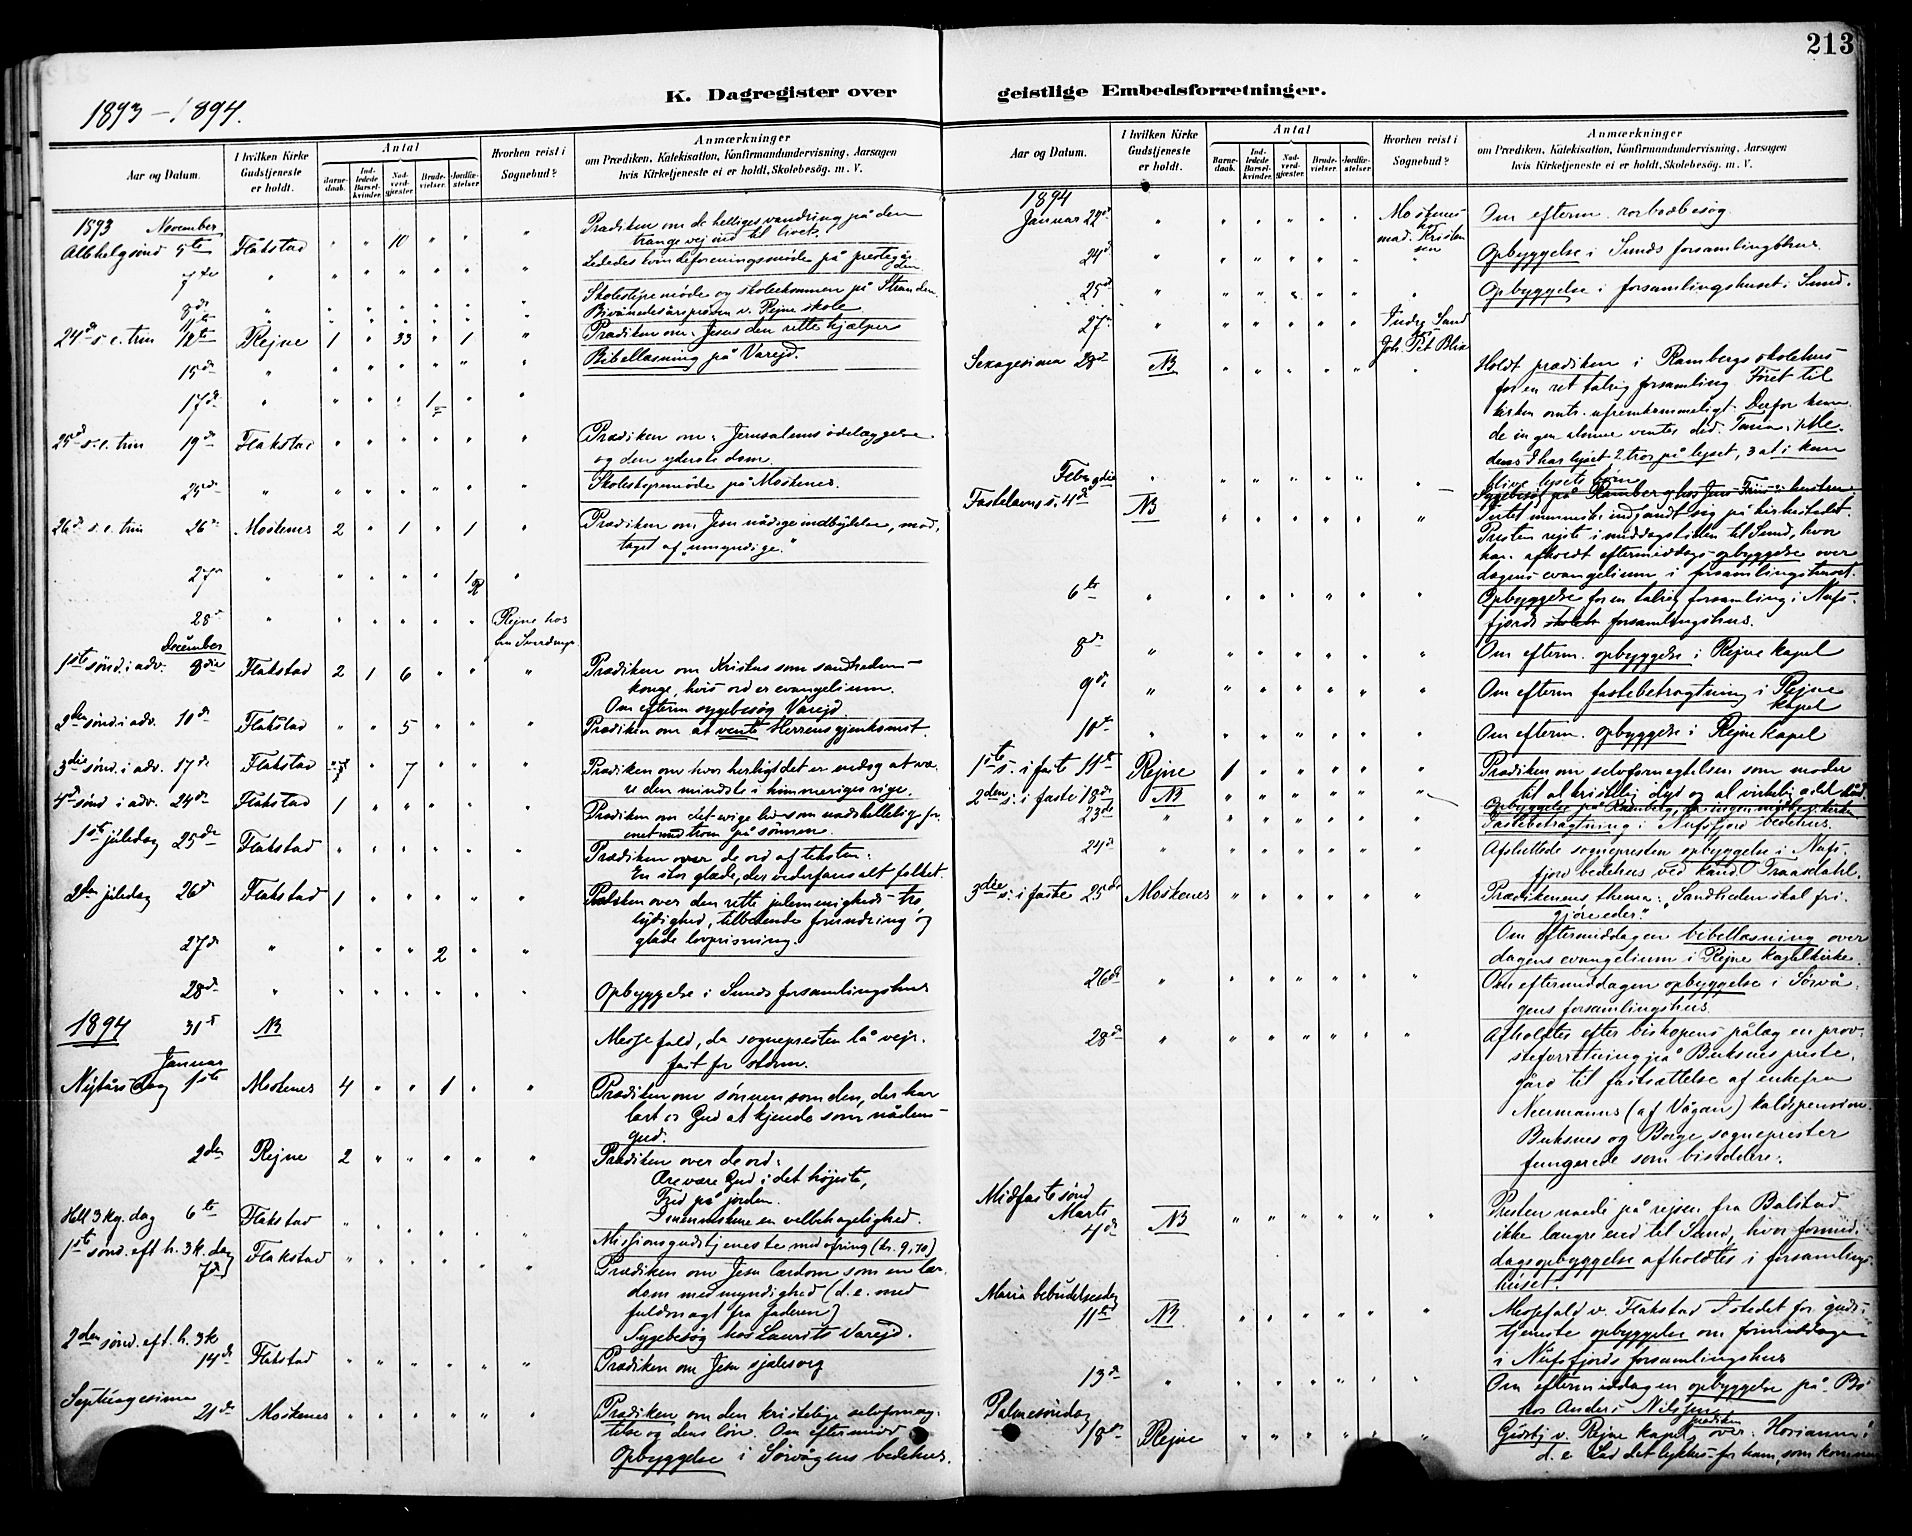 213
1893–1894.
K. Dagregister over
geistlige Embedsforretninger.
Aar og Datum.
I hvilken Kirke Gudstjeneste er holdt.
Antal
Barnedaab.
Indledede Barselkvinder.
Nadverdgjæster.
Brudevielser.
Jordfæstelser.
Hvorhen reist i Sognebud?
Anmærkninger
om Prædiken, Katekisation, Konfirmandundervisning, Aarsagen
hvis Kirketjeneste ei er holdt, Skolebesøg. m. V.
1893 November
Allehelgsønd 5te Flakstad " " 10 " " " Prædiken om de helliges vandring på den
trange vej ind til livet.
Lededes kvindeforeningsmøde på prestegår
den
8de Skolestyremøde og skolekommen på Stranden
11te Bivånedes årsprøven v. Rejne skole
24de s. e. trin 12te Rejne 1 " 33 " 1 " Prædiken om: Jesus den rette hjælper
15de " Bibellæsning på Varejd.
17de " " " " 1 " "
25de s. e. trin 19de Flakstad " " " " " " Prædiken om: Jerusalems ødelæggelse
og den yderste dom.
25de " Skolestyremøde på Moskenes.
26de s. e. trin 26de Moskenes 2 " 1 " 1 " Prædiken om Jesu nådige indbydelse, mod-
taget af "umyndige."
27de " " " " " 1 "
R
28de " " " " " " Rejne hos
December
1ste sønd. i adv. 3die Flakstad 2 1 6 " " " Prædiken om Kristus som sandhedens-
konge, hvis ord er evangelium.
Om efterm sygebesøg Varejd.
2den sønd. i adv. 10de Flakstad " " 5 " " " Prædiken om at vente Herrens gjenkomst.
3die sønd. i adv. 17de Flakstad 7 Prædiken om hvor herligt det er endog at væ-
re den mindste i himmeriges rige.
4de sønd i adv. 24de Flakstad 1 " " " " " Prædiken om det evige liv som
met med troen på sønnen.
1ste juledag 25de Flakstad " " " " " " Prædiken over de ord af teksten:
En stor glæde, der vederfares alt folket.
2den juledag 26de Flakstad 1 " " " " " over den rette julemenigheds tro
lydighed, tilbedende forundring og
glade lovprisning.
27de " " " " 2 " "
28de " " " " " " " Opbyggelse i Sunds forsamlingshus
1894 31te NB Messefald, da sognepresten lå vejr-
fast for storm.
Januar
Nytårsdag 1ste Moskenes 4 " " 1 " " Prædiken om sønnen som den, der har
lært os Gud at kjende som nådens-
gud.
2den Rejne 2 " " " " " Prædiken over de ord:
Ære være Gud i det højeste,
Fred på jorden
I menneskene en velbehagelighed.
Hell 3 kg. dag 6te Flakstad " " " " Missionsgudstjeneste med ofring (kr. 9,70)
1ste sønd. eft h. 3 k. dag
7de Flakstad " " " " " " Prædiken om Jesu lærdom som en lær-
dom med myndighed (d. e. med
fuldmagt fra faderen)
Sygebesøg hos Laurits Varejd.
2den sønd. eft. h. 3 k
14de Flakstad " " " " " " Prædiken om Jesu sjælesorg
Septuagesima
21de Moskenes " " " " " " Prædiken om den kristelige selvfornæg-
telse og dens løn. Om eftermidd
Opbyggelse i Sørvågens bedehus.
Aar og Datum.
I hvilken Kirke Gudstjeneste er holdt.
Antal
Barnedaab.
Indledede Barselkvinder.
Nadverdgjæster.
Brudevielser.
Jordfæstelser.
Hvorhen reist i Sognebud?
Anmærkninger
om Prædiken, Katekisation, Konfirmandundervisning, Aarsagen
hvis Kirketjeneste ei er holdt, Skolebesøg. m. V.
1894
Januar 22de " " " " " " Moskenes
hos
mad. Kristen
sen Om efterm. rorbodbesøg.
24de " " " " " " " Opbyggelse i Sunds forsamlingshus.
25de " " " " " " " Opbyggelse i forsamlingshuset i Sund.
27de " " " " " " Indre Sand
hos
Joh. Pet
Sexagesima 28de NB " " " " " " Holdt prædiken i Rambergs skolehus
for en ret talrig forsamling Føret til
kirken omtr. ufremkommeligt. Derfor kun-
de ingen almue ventes did.
dens I har lyset 2 tror på lyset, 3 at i kan
blive lysets børn
Februar 2den " " " " " " Sygebesøg på Ramberg hos Jens
Fastelavns s. 4de NB " " " " " " Intet menneske indfandt sig på kirkestedet.
Presten rejste i middagstiden til Sund, hvor
han afholdt eftermiddags-opbyggelse over
dagens evangelium i forsamlingshuset.
6te " " " " " " " Opbyggelse for en talrig forsamling i Nufs-
fjords skoleh forsamlingshus.
8de " " " " " " " Om efterm. opbyggelse i Rejne kapel
9de " " " " " " " Om efterm fastebetragtning i Rejne
kapel
10de " " " " " " " Om efterm. opbyggelse i Rejne kapel
1ste s. i faste 11te Rejne 1 " " " " " Prædiken om selvfornegtelsen som moder
til al kristelig dyd og al virkelig ædel dåd
2den s. i faste 18de NB " " " " " Opbyggelse på Ramberg, da ingen mødte v. kirken
23de " " " " " " " Fastebetragtning i Nufsfjord bedehus.
24de " " " " " " " Afsluttede sognepresten opbyggelse i Nufs-
fjord bedehus ved kand. Traasdahl.
3die s. i faste 25de Moskenes " " " " " " Prædikenens thema: "Sandheden skal fri-
gjøre eder."
Om eftermiddagen bibellæsning over
dagens evangelium i Rejne kapelkirke.
26de " " " " " " " Om eftermiddagen opbyggelse i Sørvå-
gens forsamlingshus.
28de " " " " " " " Afholdtes efter biskopens pålæg en prov-
steforretning på Buksnes preste-
gård til fastsættelse af enkefru
Neermanns (af Vågan) kaldspension.
Buksnes og Borge sogneprester
fungerede som bisiddere.
Midfaste sønd
Marts
4de NB " " " " " " Presten naede på rejsen fra Balstad
ikke længre end til Sund, hvor formid-
dagsopbyggelse afholdtes i forsamlings-
huset.
Maria bebudelsesdag
11te NB. " " " " " " Messefald v. Flakstad Istedet for guds-
tjeneste opbyggelse om formiddagen
i Nufsfjords forsamlingshus
13de " " " " " " " Om eftermiddagen opbyggelse på Bø
hos Anders Nilssen
Palmesøndag
18de Rejne " " " " " Gudstj v. Rejne kapel prædiken over: Hosianna!
d. e. Lad det lykkes for ham, som kommer